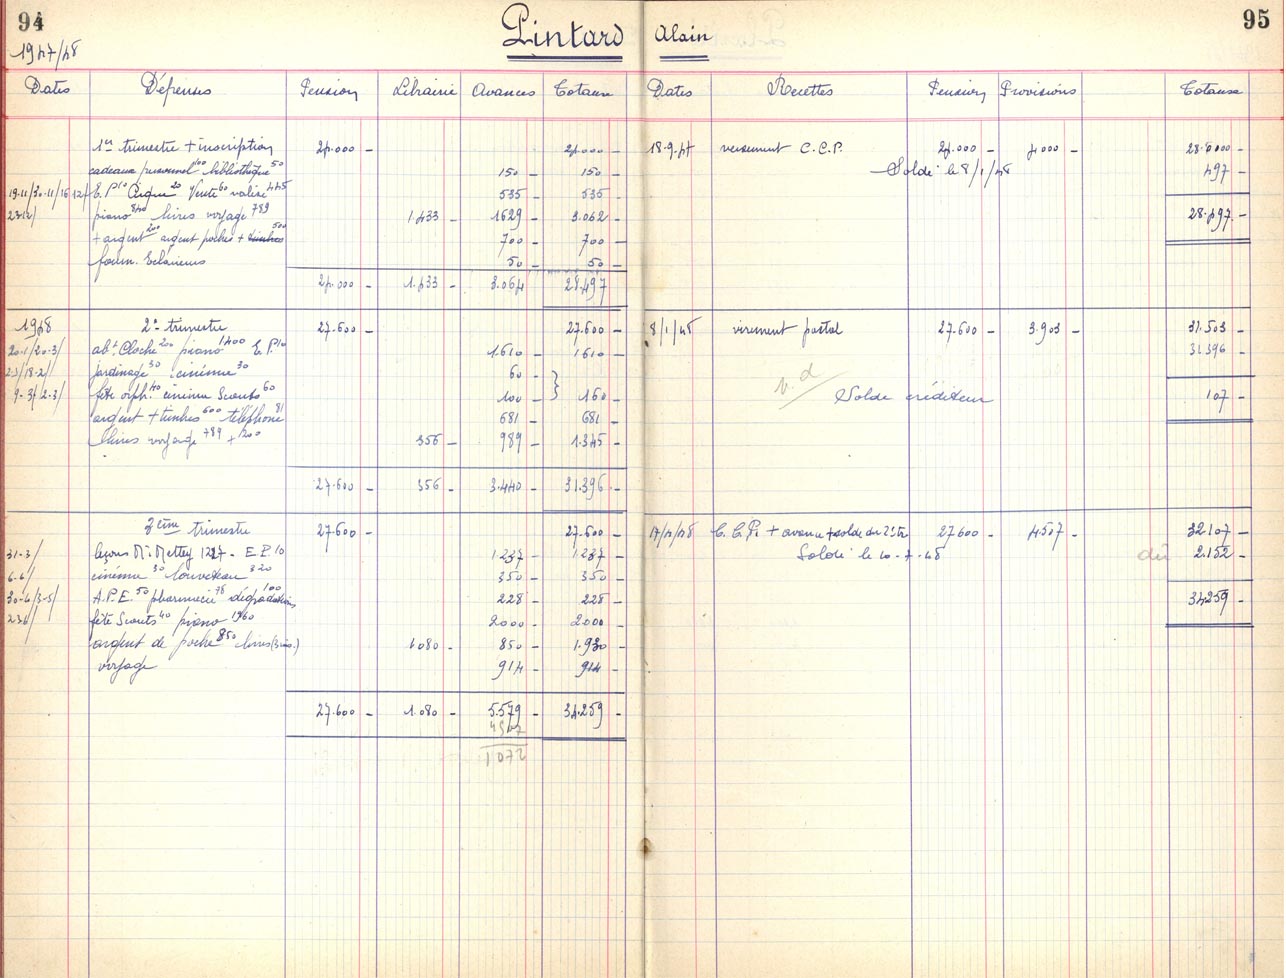 94
95
1947/48
Pintard Alain
Dates Dépenses Pension Librairie Avances Totaux Dates Recettes Pension Provisions Totaux
1er trimestre + inscription 24.000 - 24.000 - 18.9.47 versement C.C.P. 24.000 - 4000 - 28.000 -
cadeaux personnel 100 bibliothèque 50 150 - 150 - Soldé le 8/1/48 497 -
19.11/30.11/16.12/ E.P 10 20 Vente 60 valise 445 535 - 535 -
23.12/ piano 840 livres voyage 789 1433 - 1629 - 3.062 - 28.497 -
+ argent 200 argent poche + timbres 500 700 - 700 -
Eclaireurs 50 - 50 -
24.000 - 1.433 - 3.064 - 28.497 -
1948 2e trimestre 27.600 - 27.600 - 8/1/48 virement postal 27.600 - 3.903 - 31.503 -
20.1/20.3/ abt Cloche 200 piano 1400 E.P. 10 1.610 - 1610 - 31396 -
2.3/18.2/ jardinage 30 cinéma 30 60 -
9.3/2.3/ fête orph. 40 cinéma Scouts 60 100 - } 160 - v.d Solde créditeur 107 -
argent + timbres 600 téléphone 81 681 - 681 -
livres voyage 789 + 200 356 - 989 - 1.345 -
27.600 - 356 - 3.440 - 31.396 -
3ème trimestre 27.600 - 27.600 - 17/4/48 C.C.P. + avance + solde du 2e tr 27600 - 4.507 - 32.107 -
31.3/ leçons M. Mettey 1227 - E.P. 10 1237 - 1237 - Soldé le 10.7.48 dû 2.152 -
6.6/ cinéma 30 louveteau 320 350 - 350 -
30.4/3.5/ A.P.E. 50 pharmacie 78 dégradations 100 228 - 228 - 34259 -
23.6/ fête Scouts 40 piano 1960 2000 - 2000 -
argent de poche 850 livres 1080 - 850 - 1.930 -
voyage 914 - 914 -
27.600 - 1.080 - 5.579 - 34.259 -
4507
1072